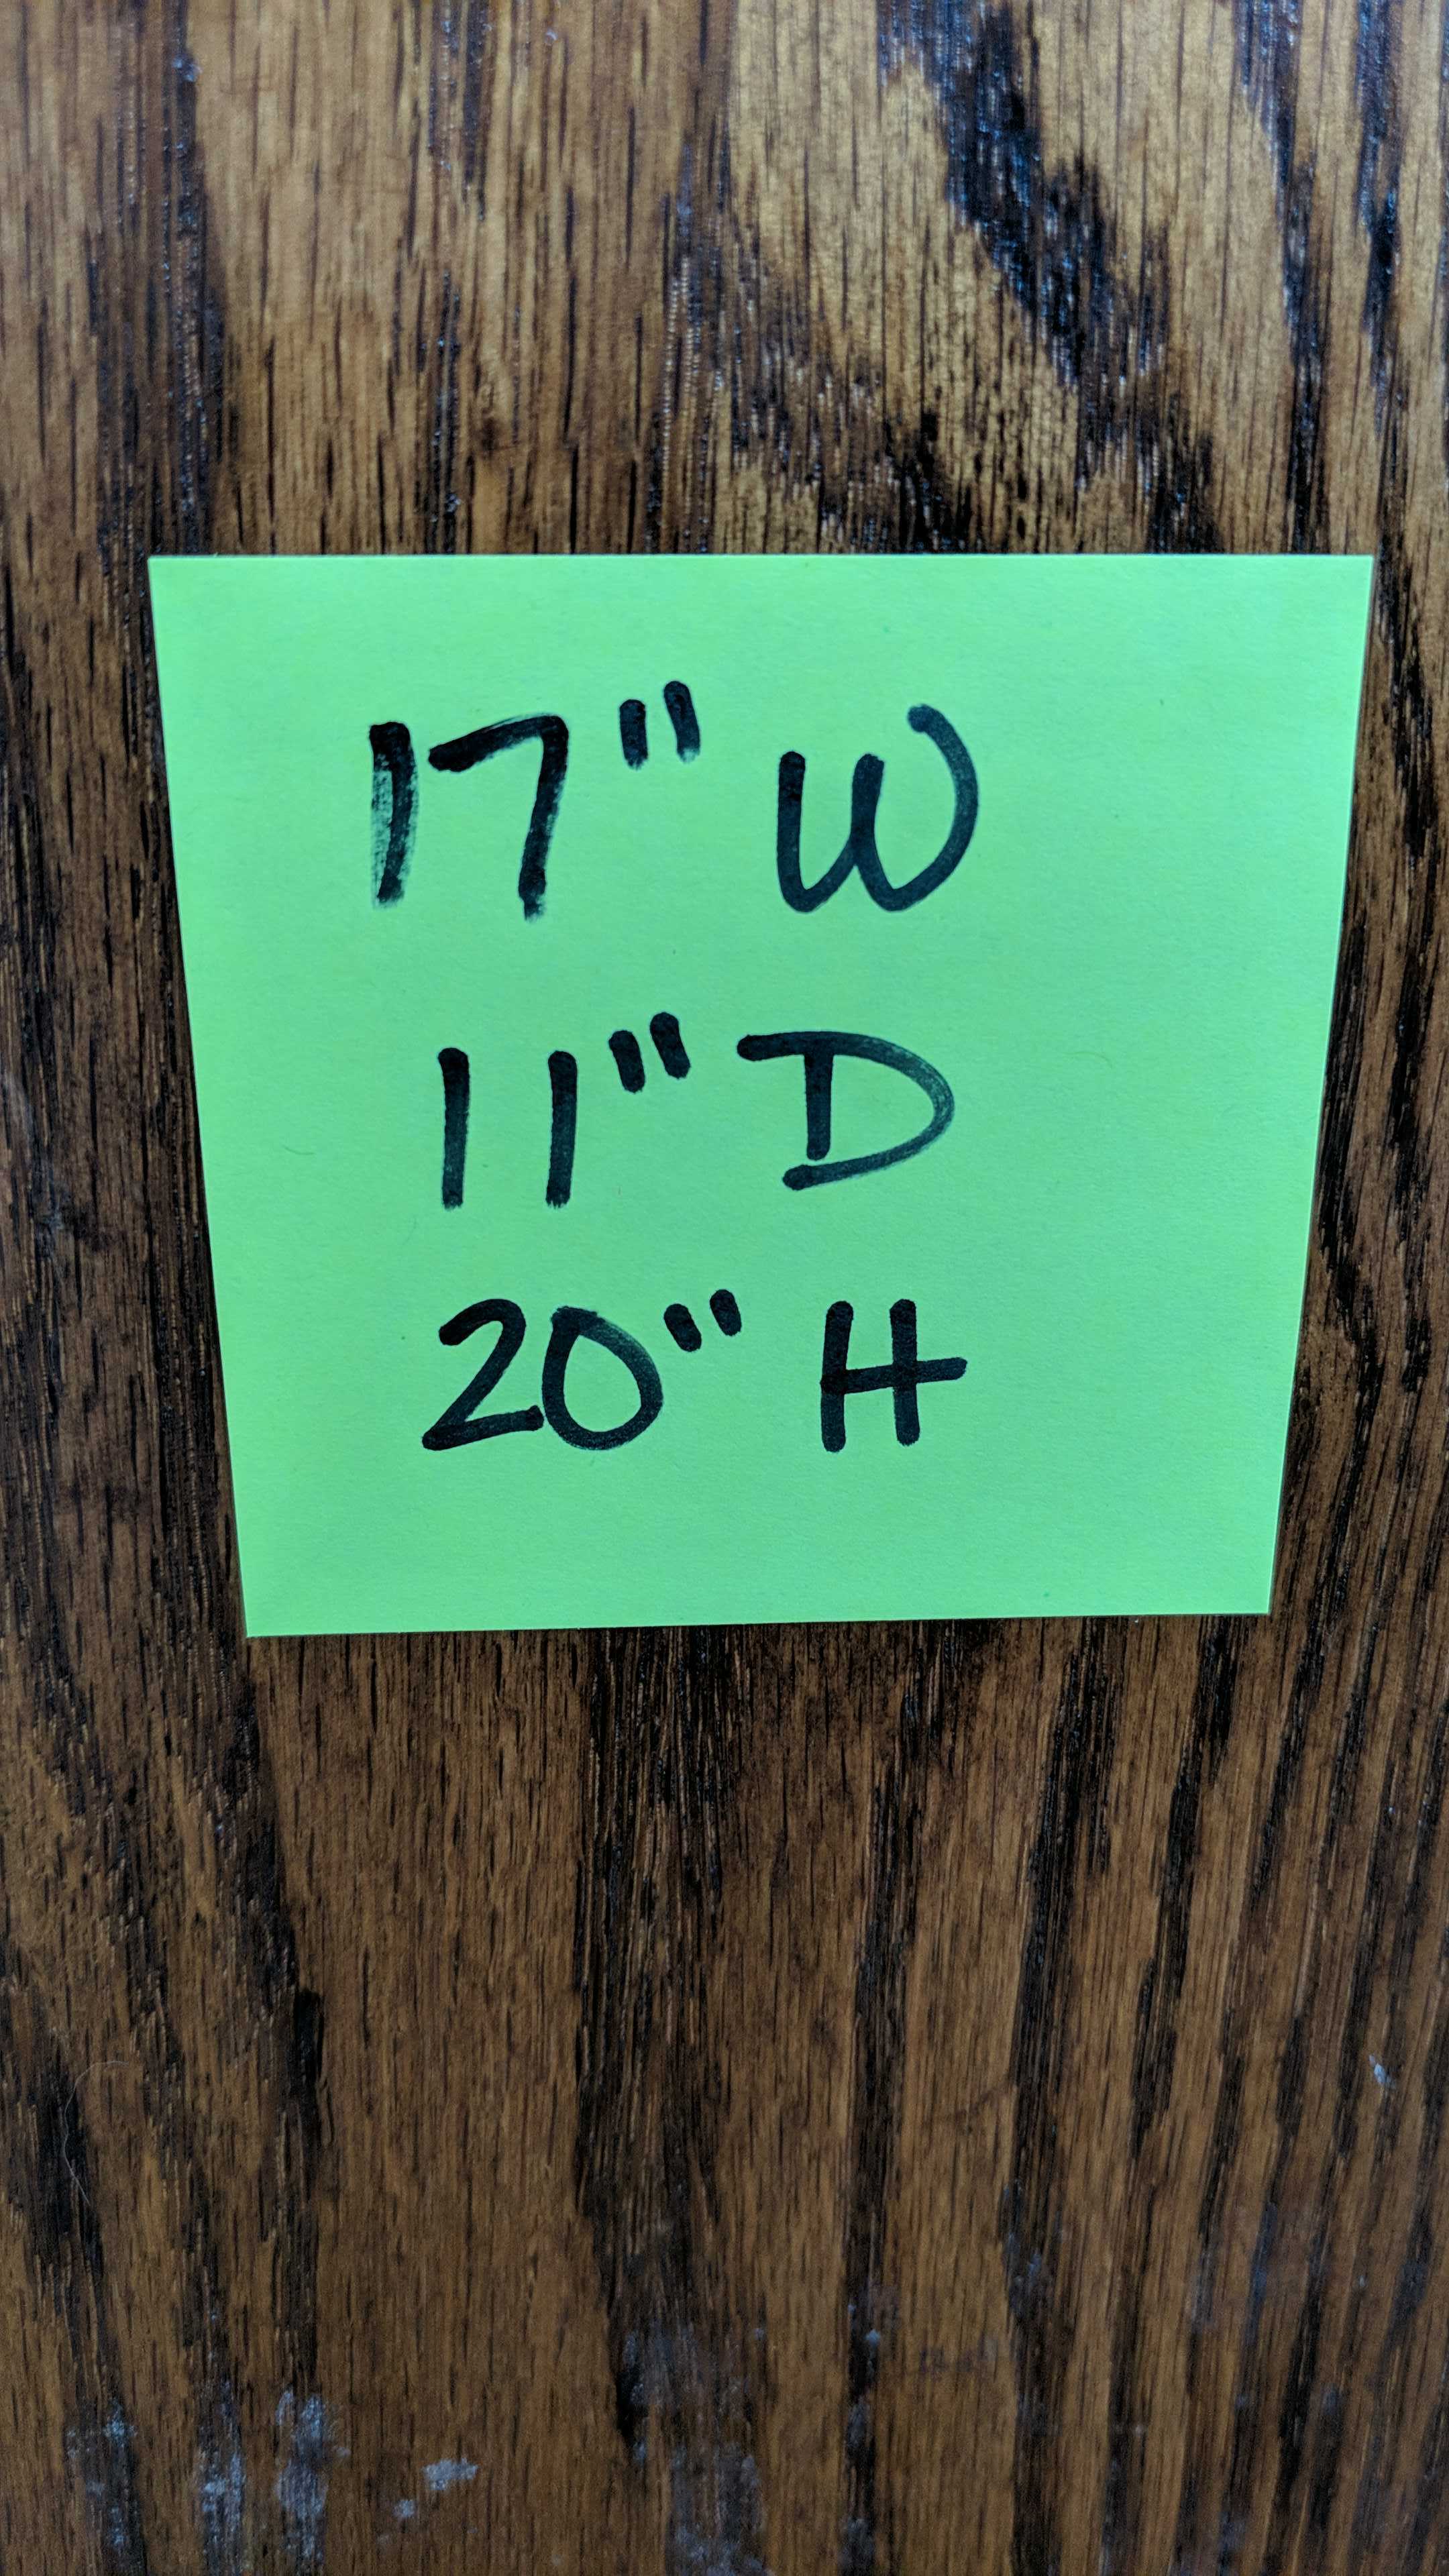 17" W
11" D
20" H